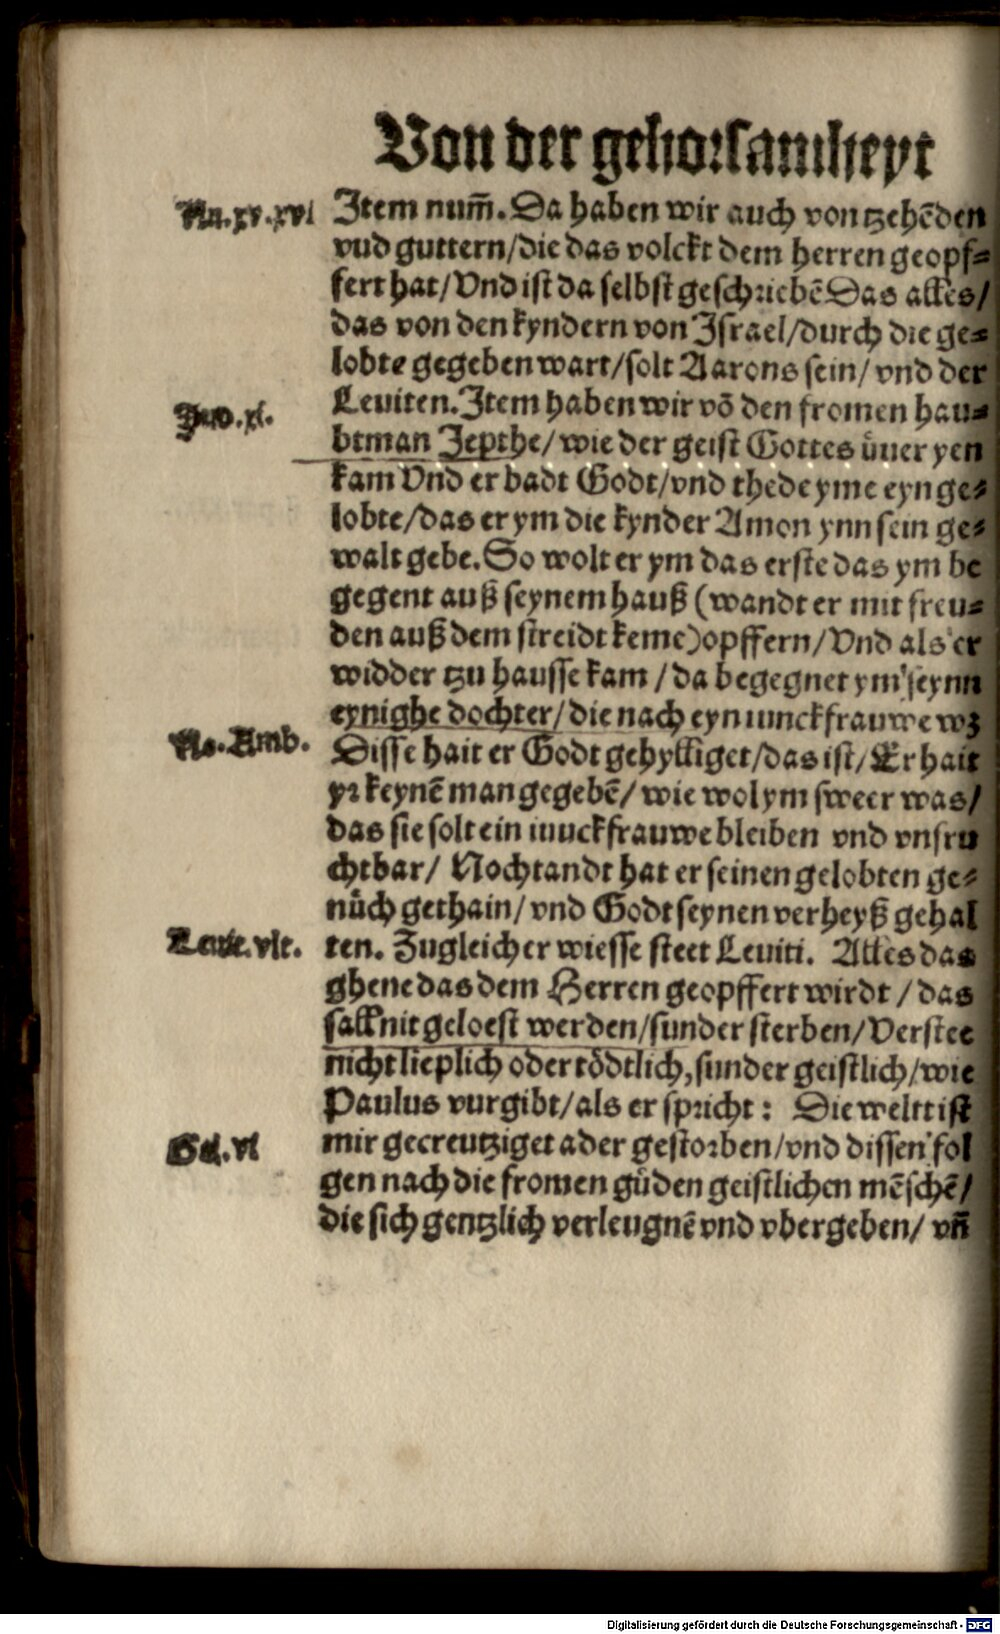 Von der gehorsamheyt
Nu.xv.xvi
Item num̄. Da haben wir auch von tzehēden
vnd guttern/die das volckt dem herren geopf=
fert hat/Vnd ist da selbst geschriebē Das alles/
das von den kyndern von Israel/durch die ge=
lobte gegeben wart/solt Aarons sein/ vnd der
Juo.xi.
Leuiten. Item haben wir vō den fromen hau=
btman Jepthe/ wie der geist Gottes uͤuer yen
kam Vnd er badt Godt/vnd thede yme eyn ge=
lobte/das er ym die kynder Amon ynn sein ge=
walt gebe. So wolt er ym das erste das ym be
gegent auß seynem hauß (wandt er mit freu=
den auß dem streidt keme)opffern/Vnd als er
widder tzu hausse kam / da begegnet ym seynn
eynighe dochter/die nach eyn iunckfrauwe wz
No.Amb.
Disse hait er Godt gehylliget/das ist/Er hait
yr keynē man gegebē/ wie wol ym sweer was/
das sie solt ein iuuckfrauwe bleiben vnd vnfru
chtbar/ Nochtandt hat er seinen gelobten ge=
nuͤch gethain/ vnd Godt seynen verheyß gehal
Leuit.vlt.
ten. Zugleicher wiesse steet Leuiti. Alles das
ghene das dem Herren geopffert wirdt / das
sall nit geloest werden/sunder sterben/Verstee
nicht lieplich oder toͤdtlich,sunder geistlich/wie
Paulus vurgibt/als er spricht: Die weltt ist
Gal.vi
mir gecreutziget ader gestorben/vnd dissen fol
gen nach die fromen guͤden geistlichen mēschē/
die sich gentzlich verleugnē vnd vbergeben/ vn̄
Digitalisierung gefördert durch die Deutsche Forschungsgemeinschaft - DFG